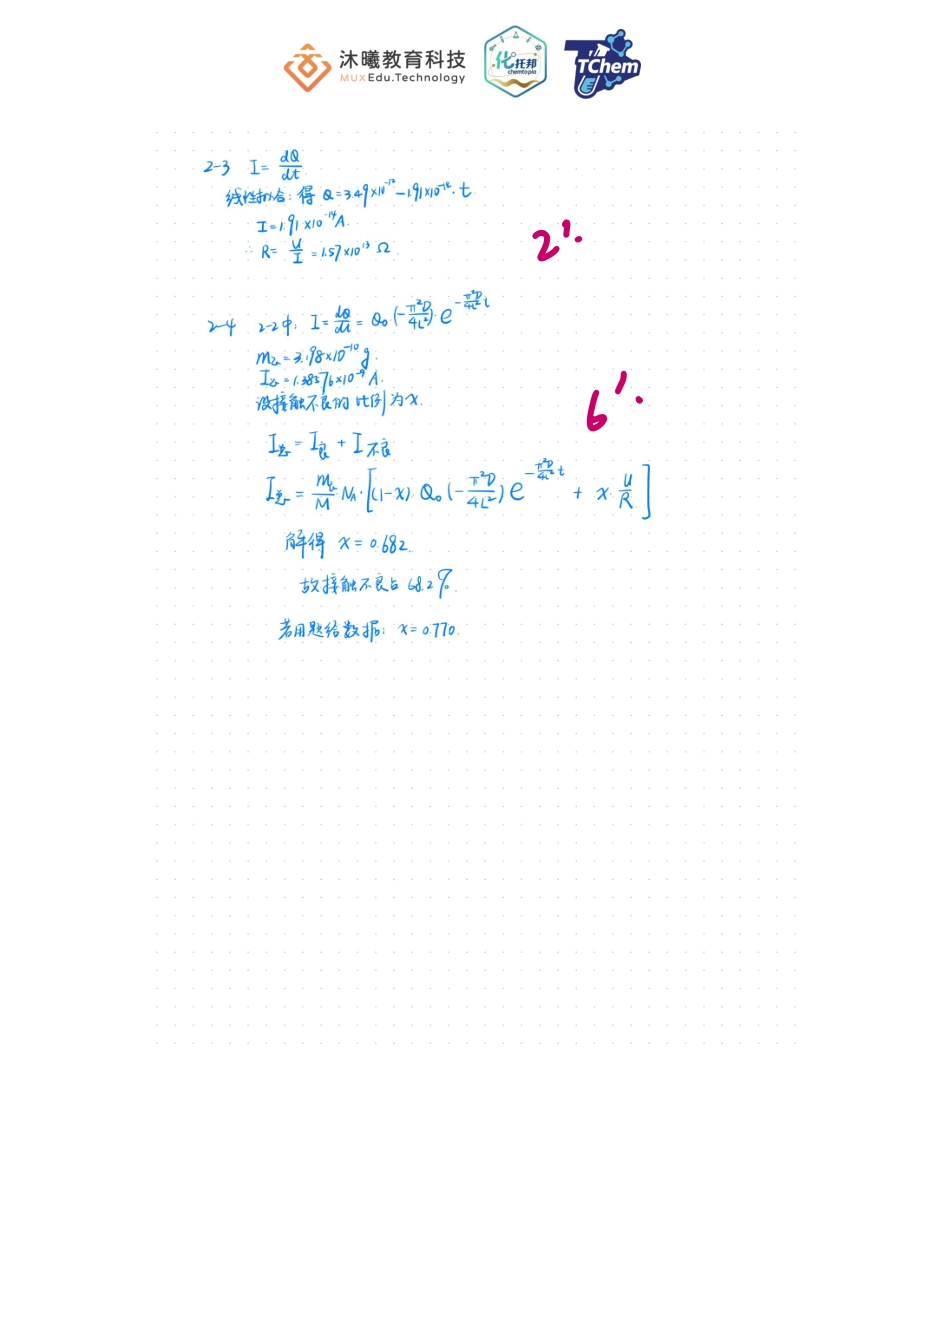 沐曦教育科技
MUXEdu.Technology
化托邦
chemtopia
TChem
2-3 I = dQ/dt
线性拟合: 得 Q = 3.49×10⁻¹² − 1.91×10⁻¹⁴·t
I = 1.91×10⁻¹⁴A.
∴ R = U/I = 1.57×10¹³ Ω
2'.
2-4 2-2中: I = dQ/dt = Q₀·(−π²D/4L²)·e^(−π²D/4L² t)
m总 = 3.198×10⁻¹⁰ g.
I总 = 1.38576×10⁻⁹ A.
设接触不良的比例为x.
6'.
I总 = I良 + I不良
I总 = m总/M·N_A·[(1−x)·Q₀(−π²D/4L²)e^(−π²D/4L² t) + x·U/R]
解得 x = 0.682.
故接触不良占 68.2%.
若用题给数据: x = 0.770.